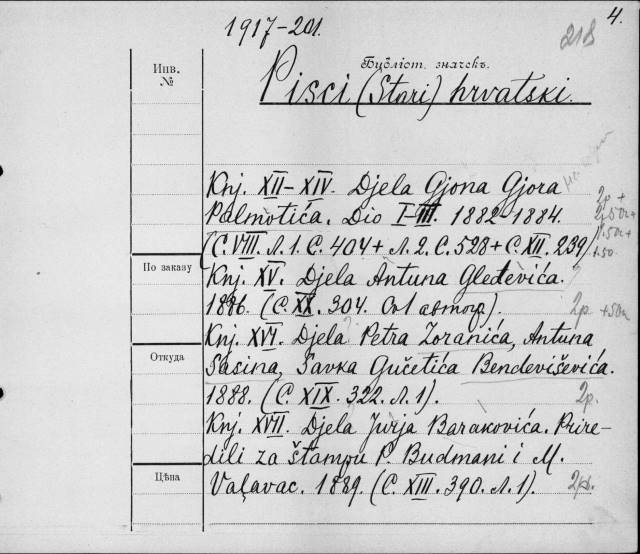 4.
1917-201.
218
Инв.
№
Бубліот. значекъ.
Pisci (Stari) hrvatski.
Knj. XII-XIV. Djela Gjona Gjora
2р +
Palmotića. Dio I-III. 1882-1884.
(С. VIII. Л. 1. С. 404 + Л. 2. С. 528 + С. XII. 239)
По заказу
Knj. XV. Djela Antuna Gleđevića.
1886. (С. XX. 304.
2р. +50к
Knj. XVI. Djela Petra Zoranića, Antuna
Откуда
Sasina, Savka Gučetića Bendeviševića.
1888. (С. XIX. 322. Л. 1).
2р.
Knj. XVII. Djela Jurja Barakovića. Prire-
dili za štampu P. Budmani i M.
Цѣна
Vaļavac. 1889. (С. XIII. 390. Л. 1).
2р.